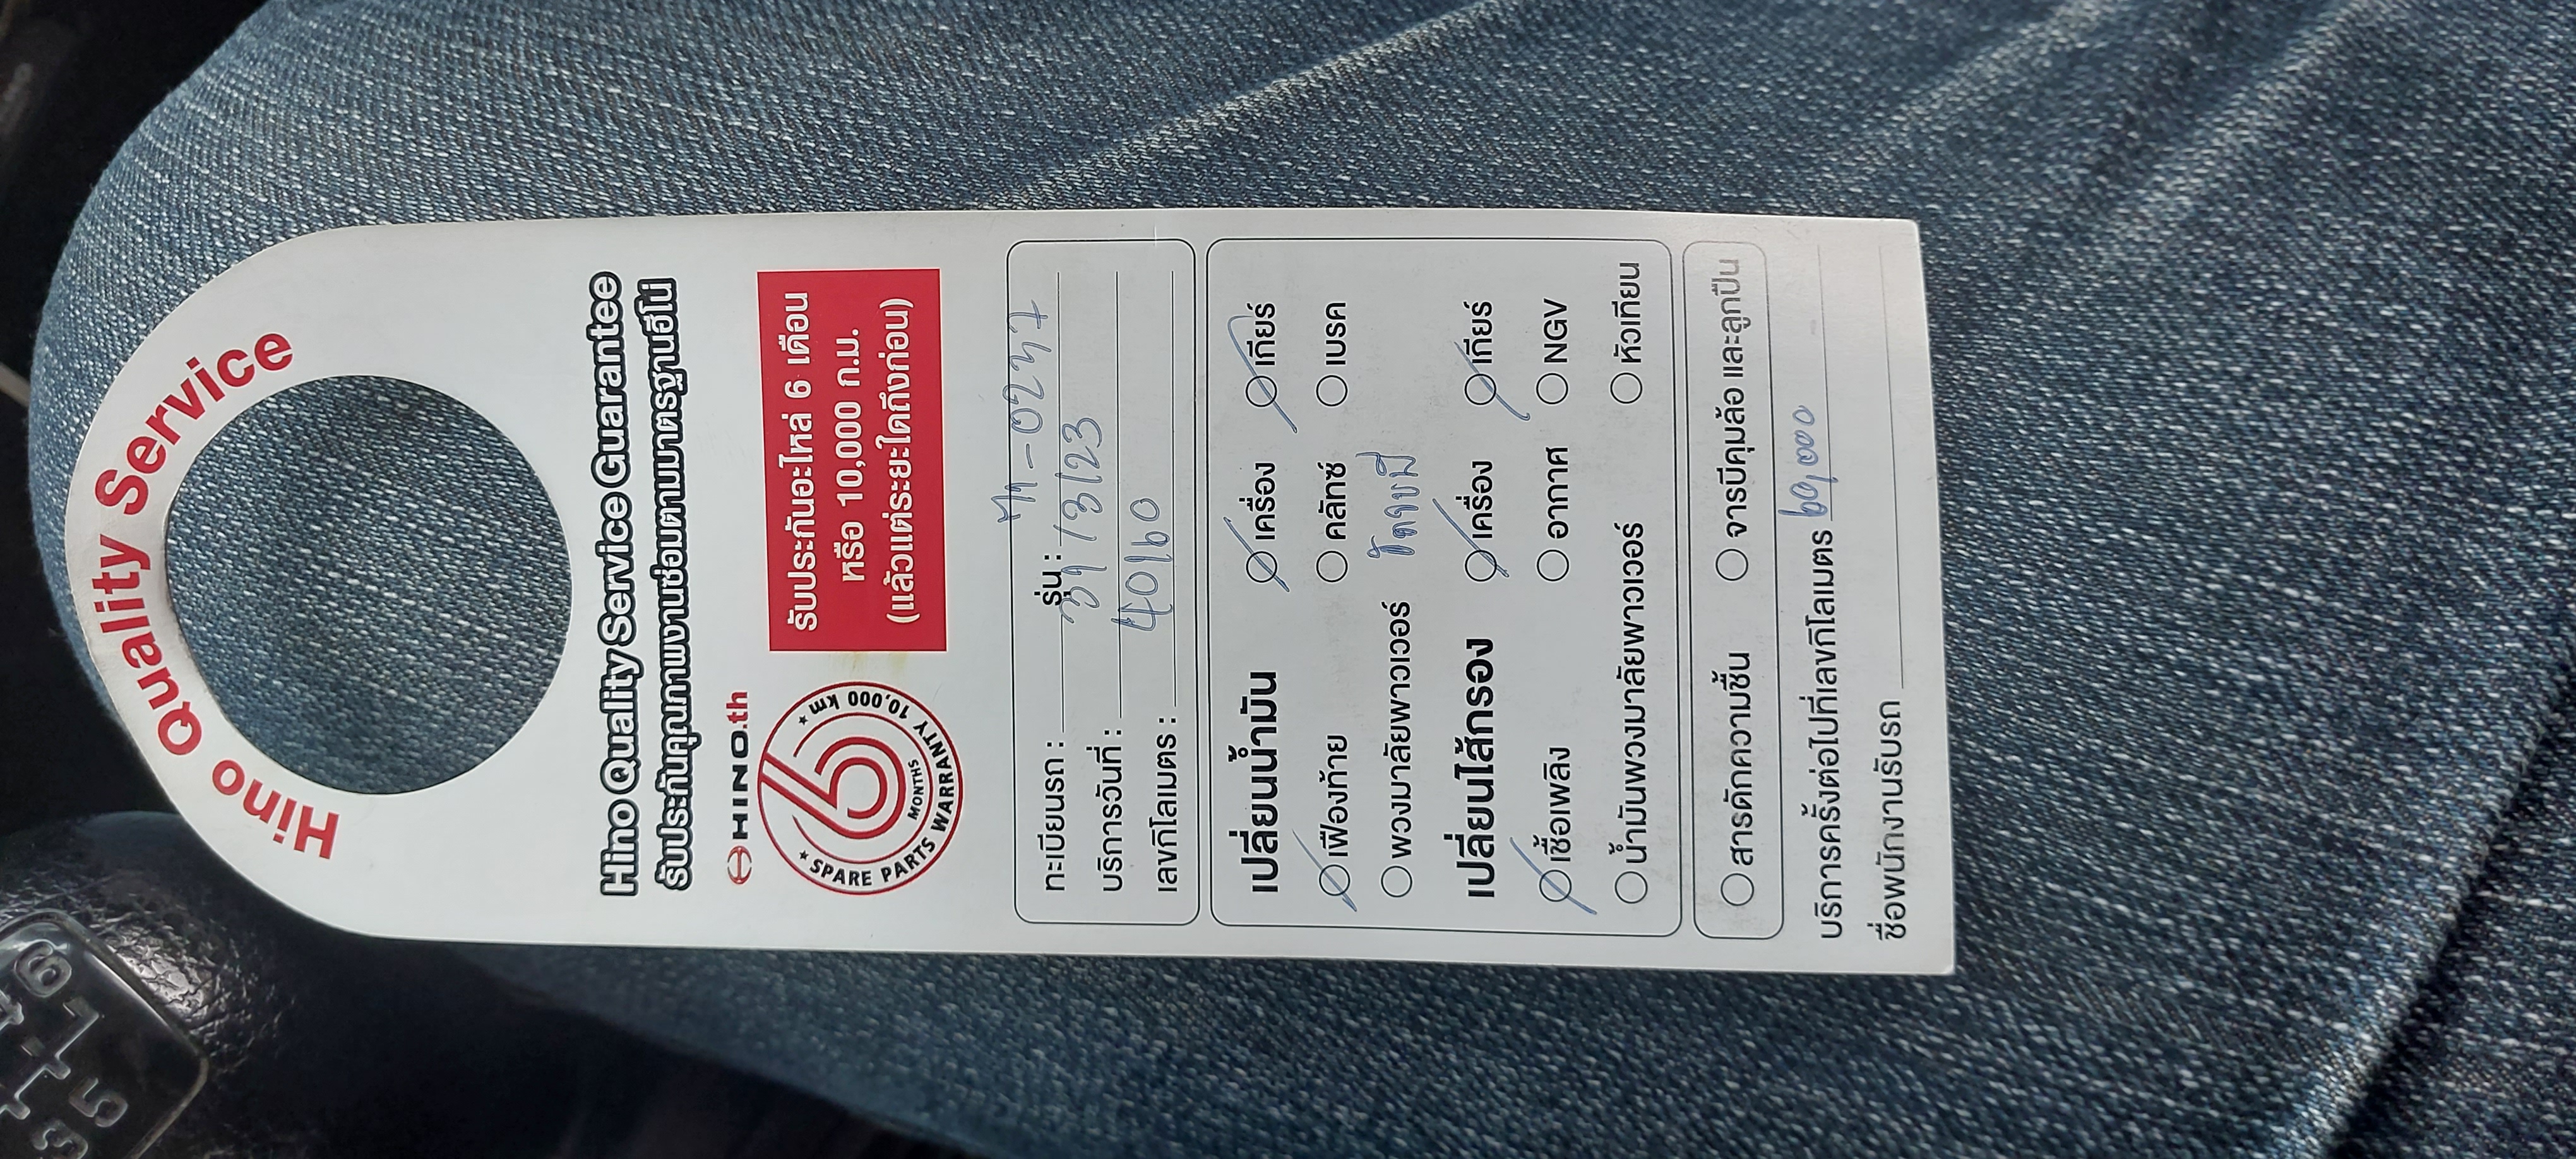 Hino Quality Service
Hino Quality Service Guarantee
รับประกันคุณภาพงานซ่อมตามมาตรฐานฮีโน่
HINO.th
6 MONTHS
★ SPARE PARTS WARRANTY 10,000 km ★
รับประกันอะไหล่ 6 เดือน
หรือ 10,000 ก.ม.
(แล้วแต่ระยะใดถึงก่อน)
ทะเบียนรถ : รุ่น : -0237
บริการวันที่ : 31/3/23
เลขกิโลเมตร : 40160
เปลี่ยนน้ำมัน เครื่อง เกียร์
เฟืองท้าย คลัทซ์ เบรค
พวงมาลัยพาวเวอร์ อัดจารบี
เปลี่ยนไส้กรอง เครื่อง เกียร์
เชื้อเพลิง อากาศ NGV
น้ำมันพวงมาลัยพาวเวอร์ หัวเทียน
สารดักความชื้น จารบีคุมล้อ และลูกปืน
บริการครั้งต่อไปที่เลขกิโลเมตร 60,000
ชื่อพนักงานรับรถ
3 5 6